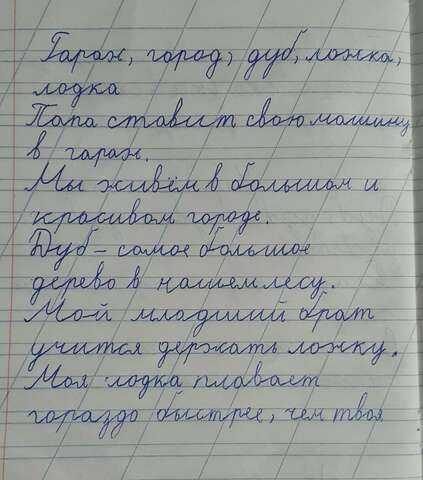 Гараж, город, дуб, ложка,
лодка
Папа ставит свою машину
в гараж.
Мы живём в большом и
красивом городе.
Дуб – самое большое
дерево в нашем лесу.
Мой младший брат
учится держать ложку.
Моя лодка плавает
гораздо быстрее, чем твоя